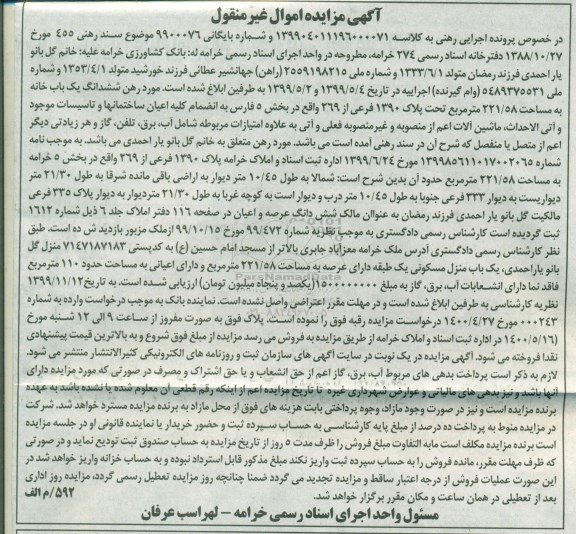 آگهی مزایده اموال غیرمنقول
در خصوص پرونده اجرایی رهنی به کلاسه ۱۳۹۹۰۴۰۱۱۱۹۶۰۰۰۰۷۱ و شماره بایگانی ۹۹۰۰۰۷۶ موضوع سند رهنی ۴۵۵ مورخ
۱۳۸۸/۱۰/۲۷ دفترخانه اسناد رسمی ۲۷۴ خرامه، مطروحه در واحد اجرای اسناد رسمی خرامه له: بانک کشاورزی خرامه علیه: خانم گل بانو
یار احمدی فرزند رمضان متولد ۱۳۳۲/۶/۱ و شماره ملی ۲۵۵۹۱۹۸۲۱۵ (راهن) جهانشیر عطائی فرزند خورشید متولد ۱۳۵۴/۱ و شماره
ملی ۵۴۸۹۳۷۵۵۳۱ (وام گیرنده) اجراییه در تاریخ ۱۳۹۹/۵/۴ و ۱۳۹۹/۵/۲ به طرفین ابلاغ شده است. مورد رهن ششدانگ یک باب خانه
به مساحت ۲۲۱/۵۸ مترمربع تحت پلاک ۱۳۹۰ فرعی از ۳۶۹ واقع در بخش ۵ فارس به انضمام کلیه اعیان ساختمانها و تاسیسات موجود
و آتی الاحداث، ماشین آلات اعم از منصوبه و غیرمنصوبه فعلی و آتی به علاوه امتیازات مربوطه شامل آب، برق، تلفن، گاز و هر زیادتی دیگر
اعم از متصل یا منفصل که شرح آن در سند رهنی آمده است می باشد. مورد رهن متعلق به خانم گل بانو یار احمدی می باشد. به موجب نامه
شماره ۱۳۹۹۸۵۶۱۱۰۱۷۰۰۲۰۶۵ مورخ ۱۳۹۹/۶/۲۴ اداره ثبت اسناد و املاک خرامه پلاک ۱۳۹۰ فرعی از ۳۶۹ واقع در بخش ۵ خرامه
به مساحت ۲۲۱/۵۸ مترمربع حدود آن بدین شرح است: شمالا به طول ۱۰/۴۵ متر دیوار به اراضی باقی مانده شرقا به طول ۲۱/۳۰ متر
دیواریست به دیوار ۳۳۳ فرعی جنوبا به طول ۱۰/۴۵ متر درب و دیوار است به کوچه غربا به طول ۲۱/۳۰ متردیوار به دیوار پلاک ۳۳۵ فرعی
مالکیت گل بانو یار احمدی فرزند رمضان به عنوان مالک شش دانگ عرصه و اعیان در صفحه ۱۱۶ دفتر املاک جلد ۶ ذیل شماره ۱۶۱۲
ثبت گردیده است کارشناس رسمی دادگستری به موجب نظریه شماره ۹۹/۴۷۲ مورخ ۹۹/۱۰/۱۵ ازملک مزبور بازدید ش ده است. طبق
نظر کارشناس رسمی دادگستری آدرس ملک خرامه معزآباد جابری بالاتر از مسجد امام حسین (ع) به کدپستی ۷۱۴۷۱۸۷۱۸۳ منزل گل
بانو یاراحمدی، یک باب منزل مسکونی یک طبقه دارای عرصه به مساحت ۲۲۱/۵۸ مترمربع و دارای اعیانی به مساحت حدود ۱۱۰ مترمربع
فاقد نما دارای انشعابات آب، برق، گاز به مبلغ ۱۵۰۰۰۰۰۰۰۰ (یکصد و پنجاه میلیون تومان) ارزیابی شده است. به تاریخ ۱۳۹۹/۱۱/۱۲
نظریه کارشناسی به طرفین ابلاغ شده است و در مهلت مقرر اعتراضی واصل نشده است. نماینده بانک به موجب درخواست وارده به شماره
۰۰۰۲۴۳ مورخ ۱۴۰۰/۴/۲۷ درخواست مزایده رقبه فوق را نموده است. پلاک فوق به صورت مفروز از ساعت ۹ الی ۱۲ شنبه مورخ
(۱۴۰۰/۵/۱۶ در اداره ثبت اسناد و املاک خرامه از طریق مزایده به فروش می رسد مزایده از مبلغ فوق شروع و به بالاترین قیمت پیشنهادی
نقدا فروخته می شود. آگهی مزایده در یک نوبت در سایت آگهی های سازمان ثبت و روزنامه های الکترونیکی کثیرالانتشار منتشر می شود.
لازم به ذکر است پرداخت بدهی های مربوط آب، برق، گاز اعم از حق انشعاب و یا حق اشتراک و مصرف در صورتی که مورد مزایده دارای
آنها باشد و نیز بدهی های مالیاتی و عوارض شهرداری غیره تا تاریخ مزایده اعم از اینکه رقم قطعی آن معلوم شده یا نشده باشد به عهده
برنده مزایده است و نیز در صورت وجود مازاد، وجوه پرداختی بابت هزینه های فوق از محل مازاد به برنده مزایده مسترد خواهد شد. شرکت
در مزایده منوط به پرداخت ده درصد از مبلغ پایه کارشناسی به حساب سپرده ثبت و حضور خریدار یا نماینده قانونی او در جلسه مزایده
است برنده مزایده مکلف است مابه التفاوت مبلغ فروش را ظرف مدت ۵ روز از تاریخ مزایده به حساب صندوق ثبت تودیع نماید و در صورتی
که ظرف مهلت مقرر، مانده فروش را به حساب سپرده ثبت واریز نکند مبلغ مذکور قابل استرداد نبوده و به حساب خزانه واریز خواهد شد در
این صورت عملیات فروش از درجه اعتبار ساقط و مزایده تجدید می گردد ضمنا چنانچه روز مزایده تعطیل رسمی گردد، مزایده روز اداری
بعد از تعطیلی در همان ساعت و مکان مقرر برگزار خواهد شد.
۵۹۲/م الف
مسئول واحد اجرای اسناد رسمی خرامه - لهراسب عرفان